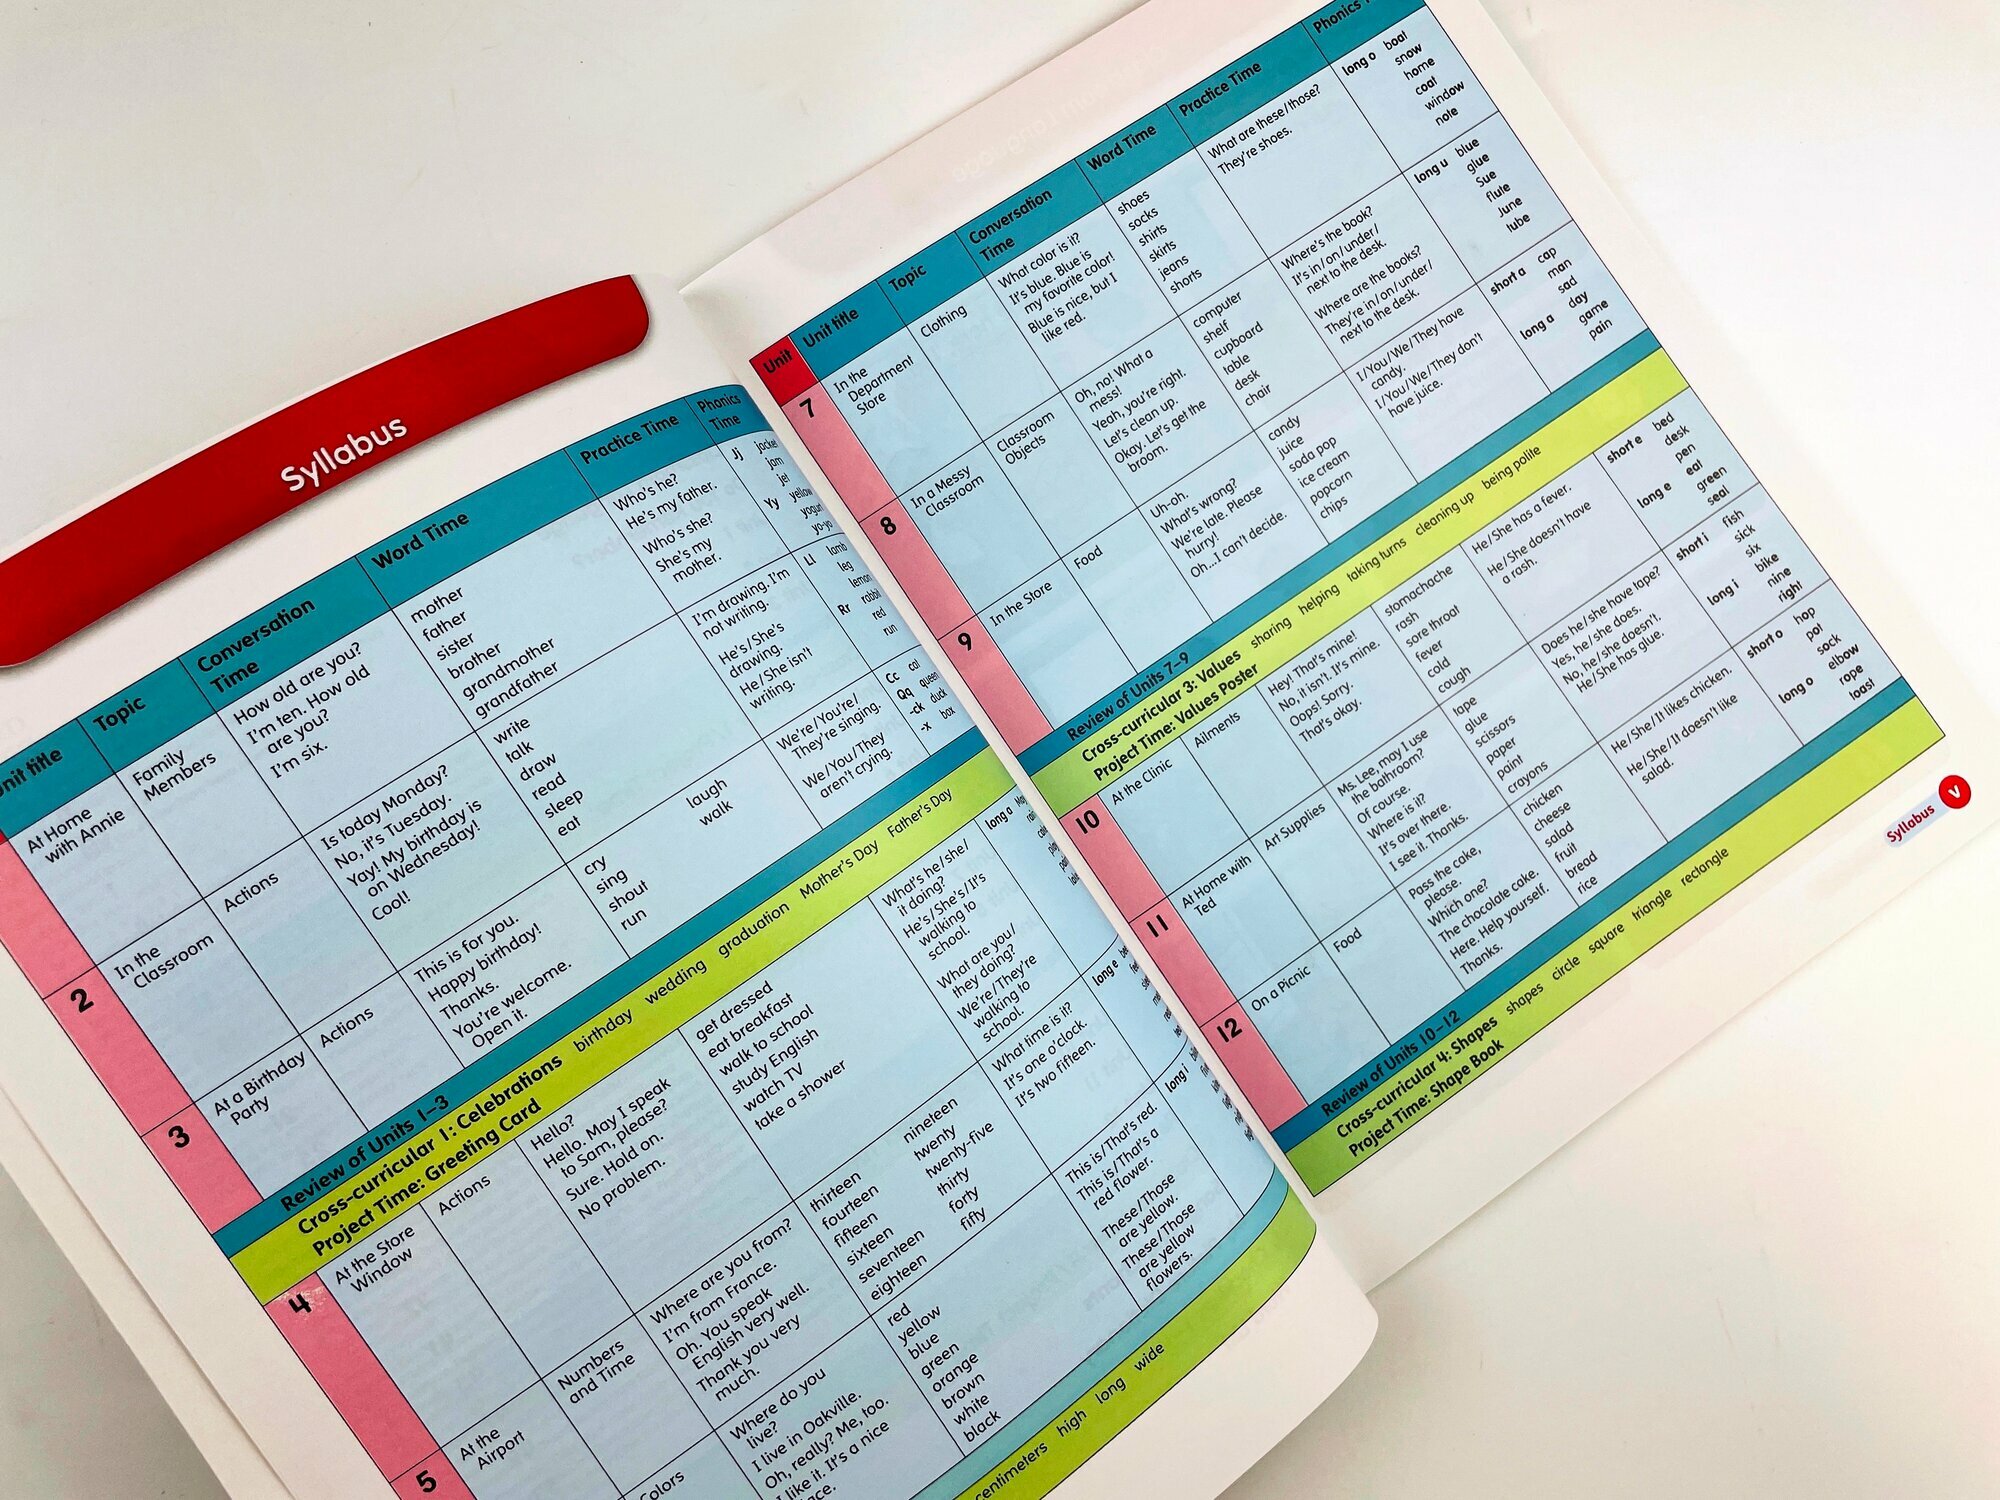 Syllabus
Unit title
Topic
Conversation
Time
Word Time
Practice Time
Phonics
Time
At Home
with Annie
Family
Members
How old are you?
I'm ten. How old
are you?
I'm six.
mother
father
sister
brother
grandmother
grandfather
Who's he?
He's my father.
Who's she?
She's my
mother.
Jj
jam
jet
Yy yellow
yogurt
yo-yo
2
In the
Classroom
Actions
Is today Monday?
No, it's Tuesday.
Yay! My birthday is
on Wednesday!
Cool!
write
talk
draw
read
sleep
eat
I'm drawing. I'm
not writing.
He's/She's
drawing.
He/She isn't
writing.
Ll lamb
leg
lemon
Rr rabbit
red
run
3
At a Birthday
Party
Actions
This is for you.
Happy birthday!
Thanks.
You're welcome.
Open it.
cry
sing
shout
run
laugh
walk
We're/You're/
They're singing.
We/You/They
aren't crying.
Cc cat
Qq queen
-ck duck
-x box
Review of Units 1–3
Cross-curricular 1: Celebrations birthday wedding graduation Mother's Day Father's Day
Project Time: Greeting Card
4
At the Store
Window
Actions
Hello?
Hello. May I speak
to Sam, please?
Sure. Hold on.
No problem.
get dressed
eat breakfast
walk to school
study English
watch TV
take a shower
What's he/she/
it doing?
He's/She's/It's
walking to
school.
What are you/
they doing?
We're/They're
walking to
school.
long a
5
At the
Airport
Numbers
and Time
Where are you from?
I'm from France.
Oh. You speak
English very well.
Thank you very
much.
thirteen
fourteen
fifteen
sixteen
seventeen
eighteen
nineteen
twenty
twenty-five
thirty
forty
fifty
What time is it?
It's one o'clock.
It's two fifteen.
long e
Colors
Where do you
live?
I live in Oakville.
Oh, really? Me, too.
I like it. It's a nice
red
yellow
blue
green
orange
brown
white
black
This is/That's red.
This is/That's a
red flower.
These/Those
are yellow.
These/Those
are yellow
flowers.
long i
centimeters high long wide
Unit
Unit title
Topic
Conversation
Time
Word Time
Practice Time
Phonics
7
In the
Department
Store
Clothing
What color is it?
It's blue. Blue is
my favorite color!
Blue is nice, but I
like red.
shoes
socks
shirts
skirts
jeans
shorts
What are these/those?
They're shoes.
long o boat
snow
home
coat
window
note
8
In a Messy
Classroom
Classroom
Objects
Oh, no! What a
mess!
Yeah, you're right.
Let's clean up.
Okay. Let's get the
broom.
computer
shelf
cupboard
table
desk
chair
Where's the book?
It's in/on/under/
next to the desk.
Where are the books?
They're in/on/under/
next to the desk.
long u blue
glue
Sue
flute
June
tube
9
In the Store
Food
Uh-oh.
What's wrong?
We're late. Please
hurry!
Oh...I can't decide.
candy
juice
soda pop
ice cream
popcorn
chips
I/You/We/They have
candy.
I/You/We/They don't
have juice.
short a cap
man
sad
long a day
game
pain
Review of Units 7–9
Cross-curricular 3: Values sharing helping taking turns cleaning up being polite
Project Time: Values Poster
10
At the Clinic
Ailments
Hey! That's mine!
No, it isn't. It's mine.
Oops! Sorry.
That's okay.
stomachache
rash
sore throat
fever
cold
cough
He/She has a fever.
He/She doesn't have
a rash.
short e bed
desk
pen
long e eat
green
seal
11
At Home with
Ted
Art Supplies
Ms. Lee, may I use
the bathroom?
Of course.
Where is it?
It's over there.
I see it. Thanks.
tape
glue
scissors
paper
paint
crayons
Does he/she have tape?
Yes, he/she does.
No, he/she doesn't.
He/She has glue.
short i fish
sick
six
long i bike
nine
right
12
On a Picnic
Food
Pass the cake,
please.
Which one?
The chocolate cake.
Here. Help yourself.
Thanks.
chicken
cheese
salad
fruit
bread
rice
He/She/It likes chicken.
He/She/It doesn't like
salad.
short o hop
pot
sock
long o elbow
rope
toast
Review of Units 10–12
Cross-curricular 4: Shapes shapes circle square triangle rectangle
Project Time: Shape Book
Syllabus v